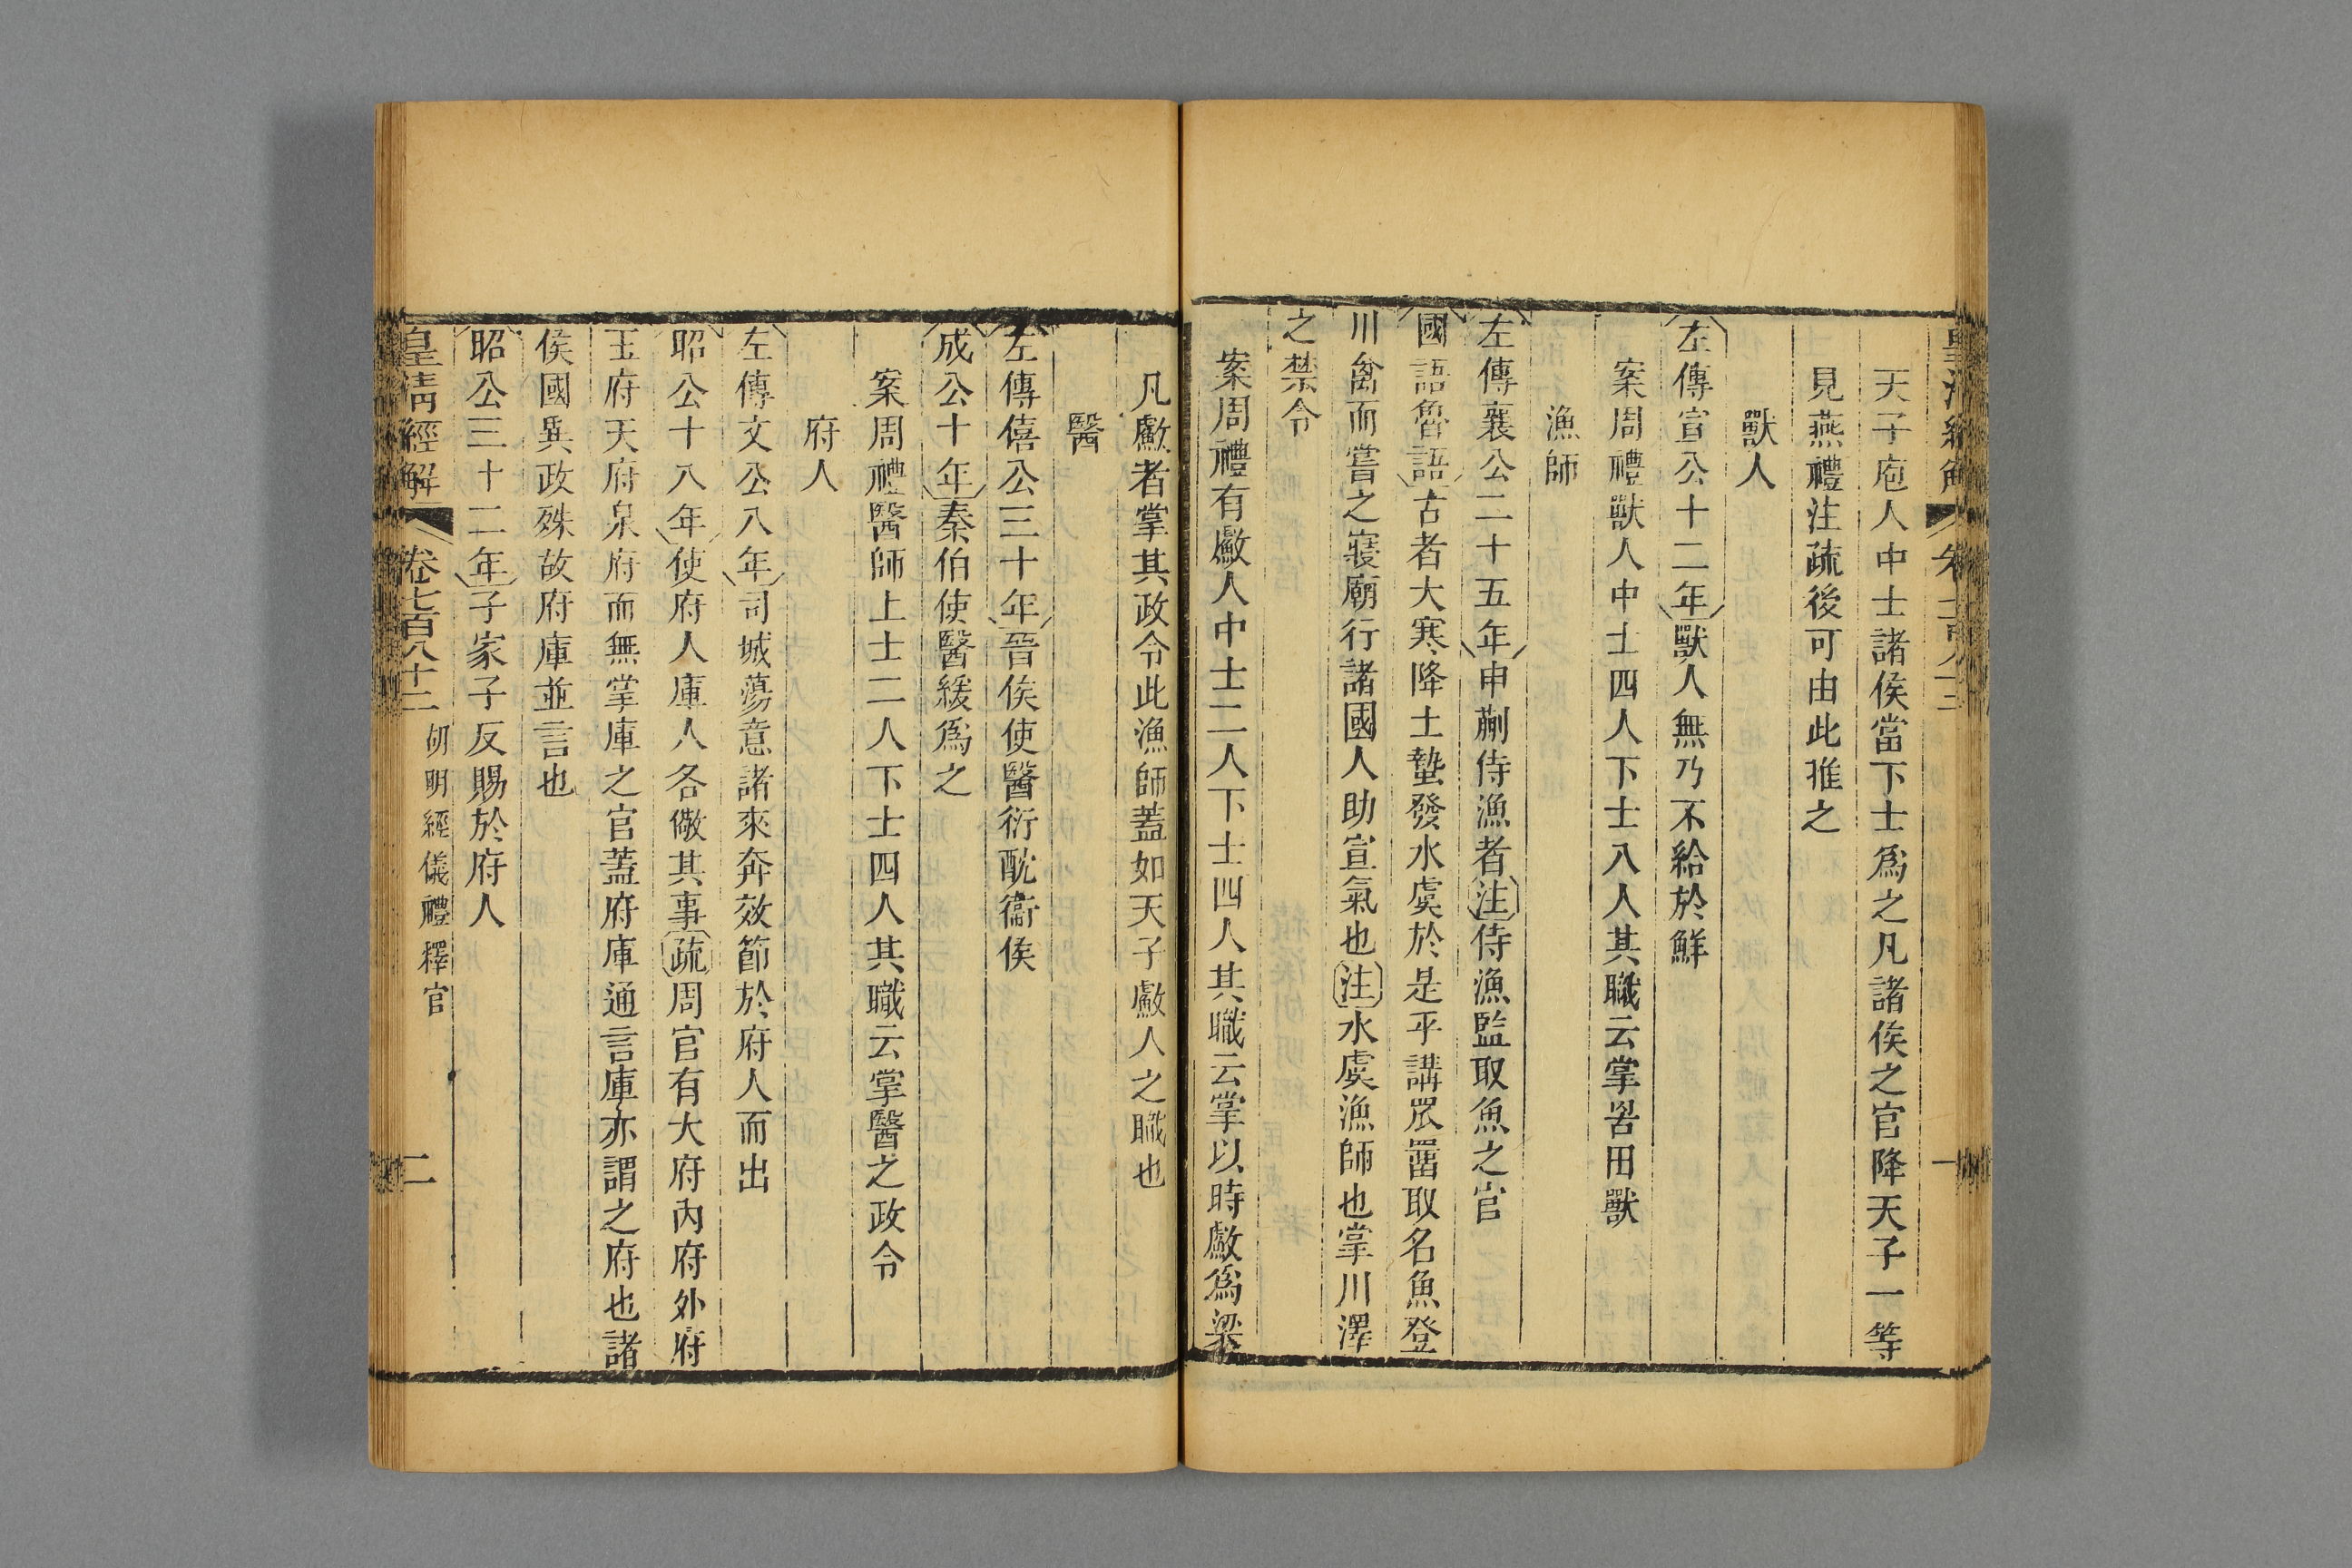 天子庖人中士諸侯當下士爲之凡諸侯之官降天子一等
見燕禮注疏後可由此推之
獸人
左傳宣公十二年獸人無乃不給於鮮
案周禮獸人中士四人下士八人其職云掌罟田獸
漁師
左傳襄公二十五年申蒯侍漁者注侍漁監取魚之官
國語魯語古者大寒降土蟄發水虞於是乎講罛罶取名魚登
川禽而嘗之寢廟行諸國人助宣氣也注水虞漁師也掌川澤
之禁令
案周禮有䱷人中士二人下士四人其職云掌以時䱷爲梁
凡䱷者掌其政令此漁師蓋如天子䱷人之職也
醫
左傳僖公三十年晉侯使醫衍酖衞侯
成公十年秦伯使醫緩爲之
案周禮醫師上士二人下士四人其職云掌醫之政令
府人
左傳文公八年司城蕩意諸來奔效節於府人而出
昭公十八年使府人庫人各儆其事疏周官有大府內府外府
玉府天府泉府而無掌庫之官蓋府庫通言庫亦謂之府也諸
侯國異政殊故府庫並言也
昭公三十二年子家子反賜於府人
皇清經解 卷七百八十二 胡明經儀禮釋官 二